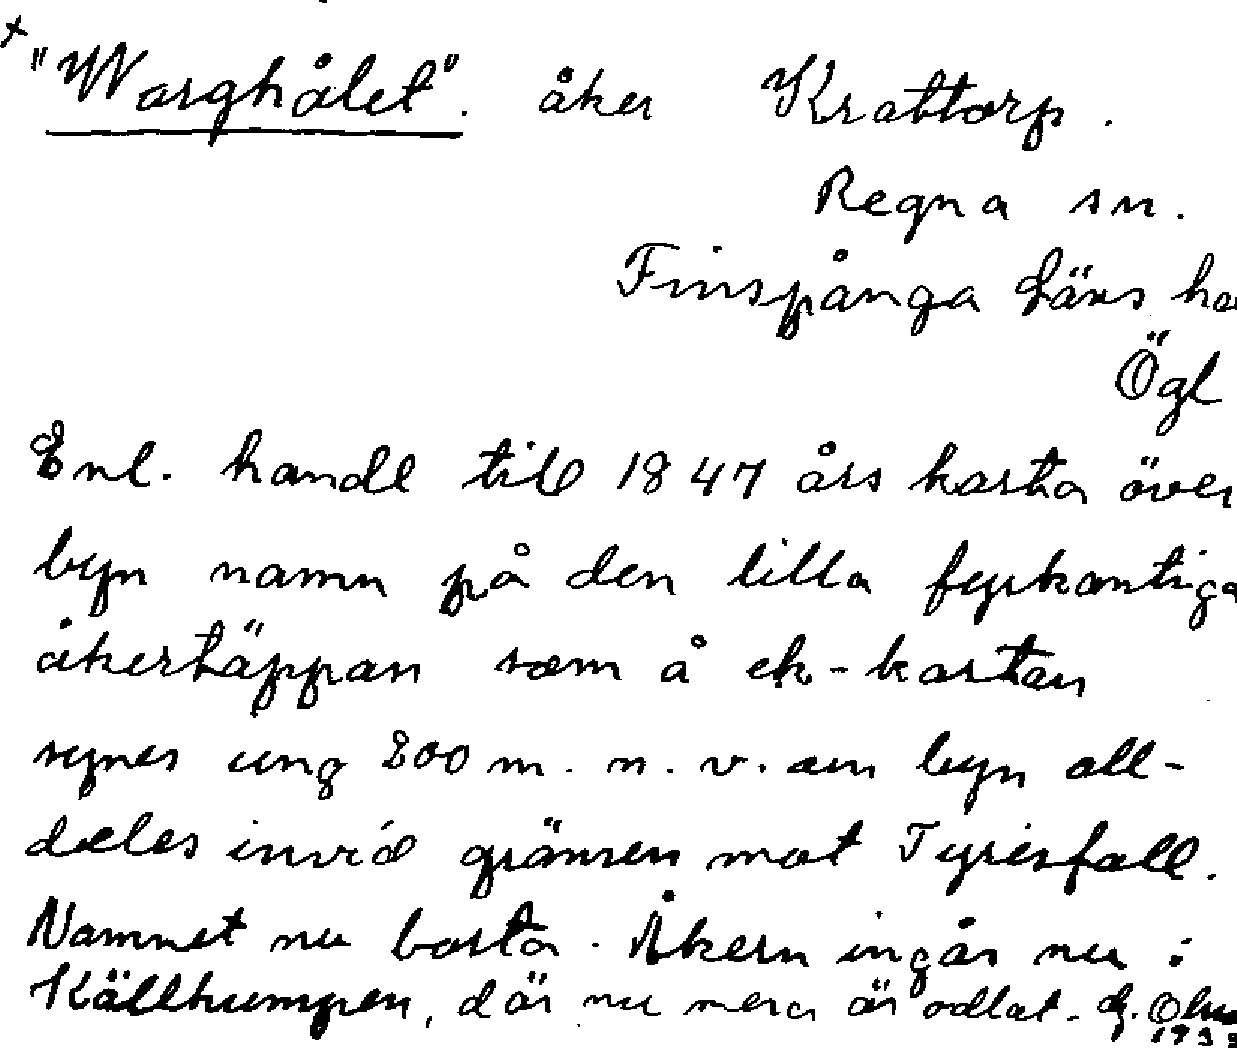 "Warghålet". åker Krattorp.
Regna sn.
Finspånga läns
Ögl
Enl. handl till 1847 års karta över
byn namn på den lilla fyrkantiga
åkertäppan som å ek-kartan
synes ung 800 m. n. v. om byn all-
deles invid gränsen mot Tyrisfall.
Namnet nu borta. Åkern ingår nu i
Källkumpen, där nu mera är odlat.